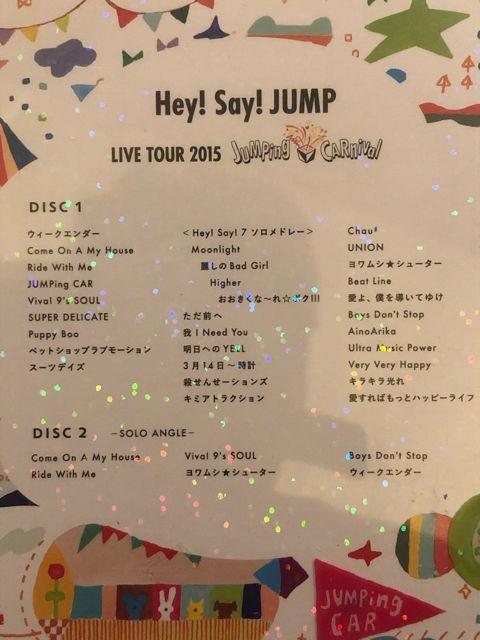 Hey! Say! JUMP
LIVE TOUR 2015 JUMPing CARnival
DISC 1
ウィークエンダー
Come On A My House
Ride With Me
JUMPing CAR
Viva! 9's SOUL
SUPER DELICATE
Puppy Boo
ペットショップラブモーション
スーツデイズ
<Hey! Say! 7 ソロメドレー>
Moonlight
麗しのBad Girl
Higher
おおきくな~れ☆ボク!!!
ただ前へ
我 I Need You
明日へのYELL
3月14日~時計
殺せんせーションズ
キミアトラクション
Chau#
UNION
ヨワムシ★シューター
Beat Line
愛よ、僕を導いてゆけ
Boys Don't Stop
AinoArika
Ultra Music Power
Very Very Happy
キラキラ光れ
愛すればもっとハッピーライフ
DISC 2 -SOLO ANGLE-
Come On A My House
Ride With Me
Viva! 9's SOUL
ヨワムシ★シューター
Boys Don't Stop
ウィークエンダー
JUMPing
CAR